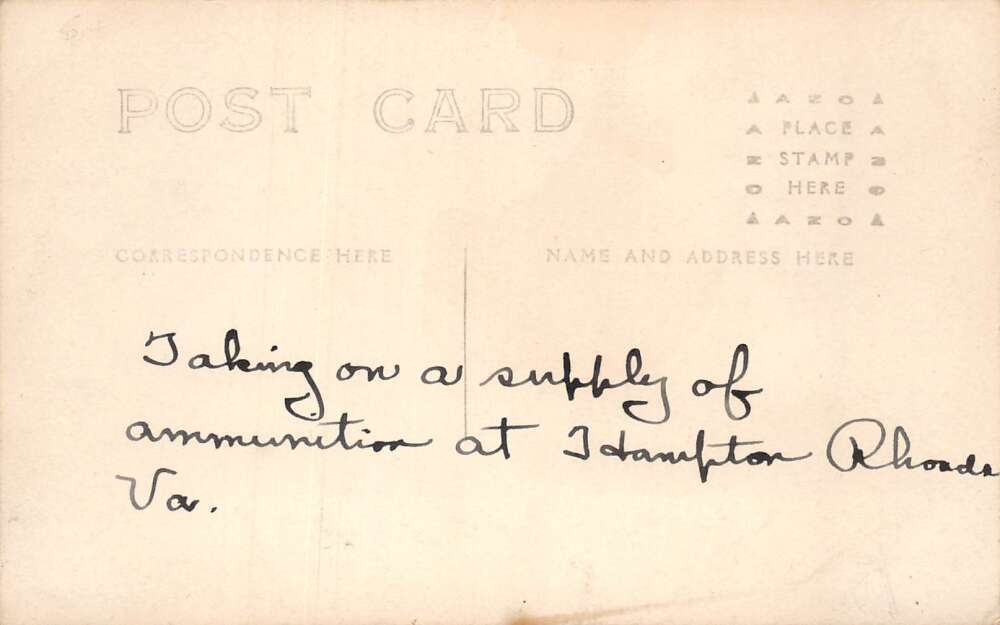 POST CARD
AZO
PLACE
STAMP
HERE
AZO
CORRESPONDENCE HERE
NAME AND ADDRESS HERE
Taking on a supply of
ammunition at Hampton Rhoads
Va.